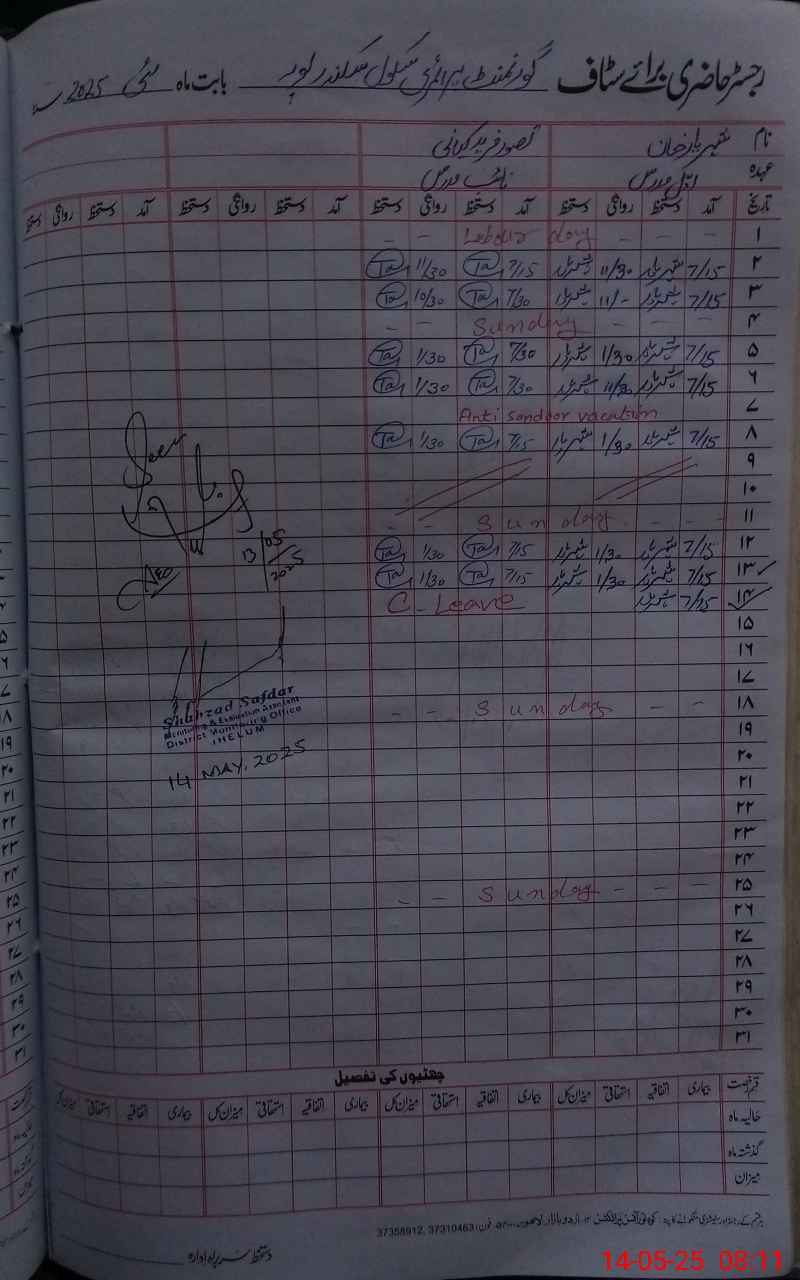 رجسٹر حاضری برائے سٹاف گورنمنٹ پرائمری سکول سکندر پور بابت ماہ مئی 2025ء
نام شہریار خان تصور فرید کیانی
عہدہ اول مدرس نائب مدرس
تاریخ آمد دستخط روانگی دستخط آمد دستخط روانگی دستخط آمد دستخط روانگی دستخط آمد دستخط روانگی دستخط
۱ - - - Labour day - -
۲ 7/15 شہریار 11/30 شہریار 7/15 Ta 11/30 Ta
۳ 7/15 شہریار 11/- شہریار 7/30 Ta 10/30 Ta
۴ - - - Sunday - -
۵ 7/15 شہریار 1/30 شہریار 7/30 Ta 1/30 Ta
۶ 7/15 شہریار 11/30 شہریار 7/30 Ta 1/30 Ta
۷ Anti sondoor vacation
۸ 7/15 شہریار 1/30 شہریار 7/15 Ta 1/30 Ta
۹
۱۰
۱۱ - - - Sunday - -
۱۲ 7/15 شہریار 1/30 شہریار 7/15 Ta 1/30 Ta
۱۳ 7/15 شہریار 1/30 شہریار 7/15 Ta 1/30 Ta
۱۴ 7/15 شہریار C-Leave
۱۵
۱۶
۱۷
۱۸ - - - Sunday - -
۱۹
۲۰
۲۱
۲۲
۲۳
۲۴
۲۵ - - - Sunday - -
۲۶
۲۷
۲۸
۲۹
۳۰
۳۱
Seen
13/05/2025
AEO
Shahzad Safdar
Monitoring & Evaluation Assistant
District Monitoring Office
JHELUM
14 MAY, 2025
چھٹیوں کی تفصیل
قسم رخصت بیماری اتفاقیہ استحقاقی میزان کل بیماری اتفاقیہ استحقاقی میزان کل بیماری اتفاقیہ استحقاقی میزان کل بیماری اتفاقیہ استحقاقی میزان کل
حالیہ ماہ
گذشتہ ماہ
میزان
37358912, 37310463
دستخط سربراہ ادارہ
14-05-25 08:11